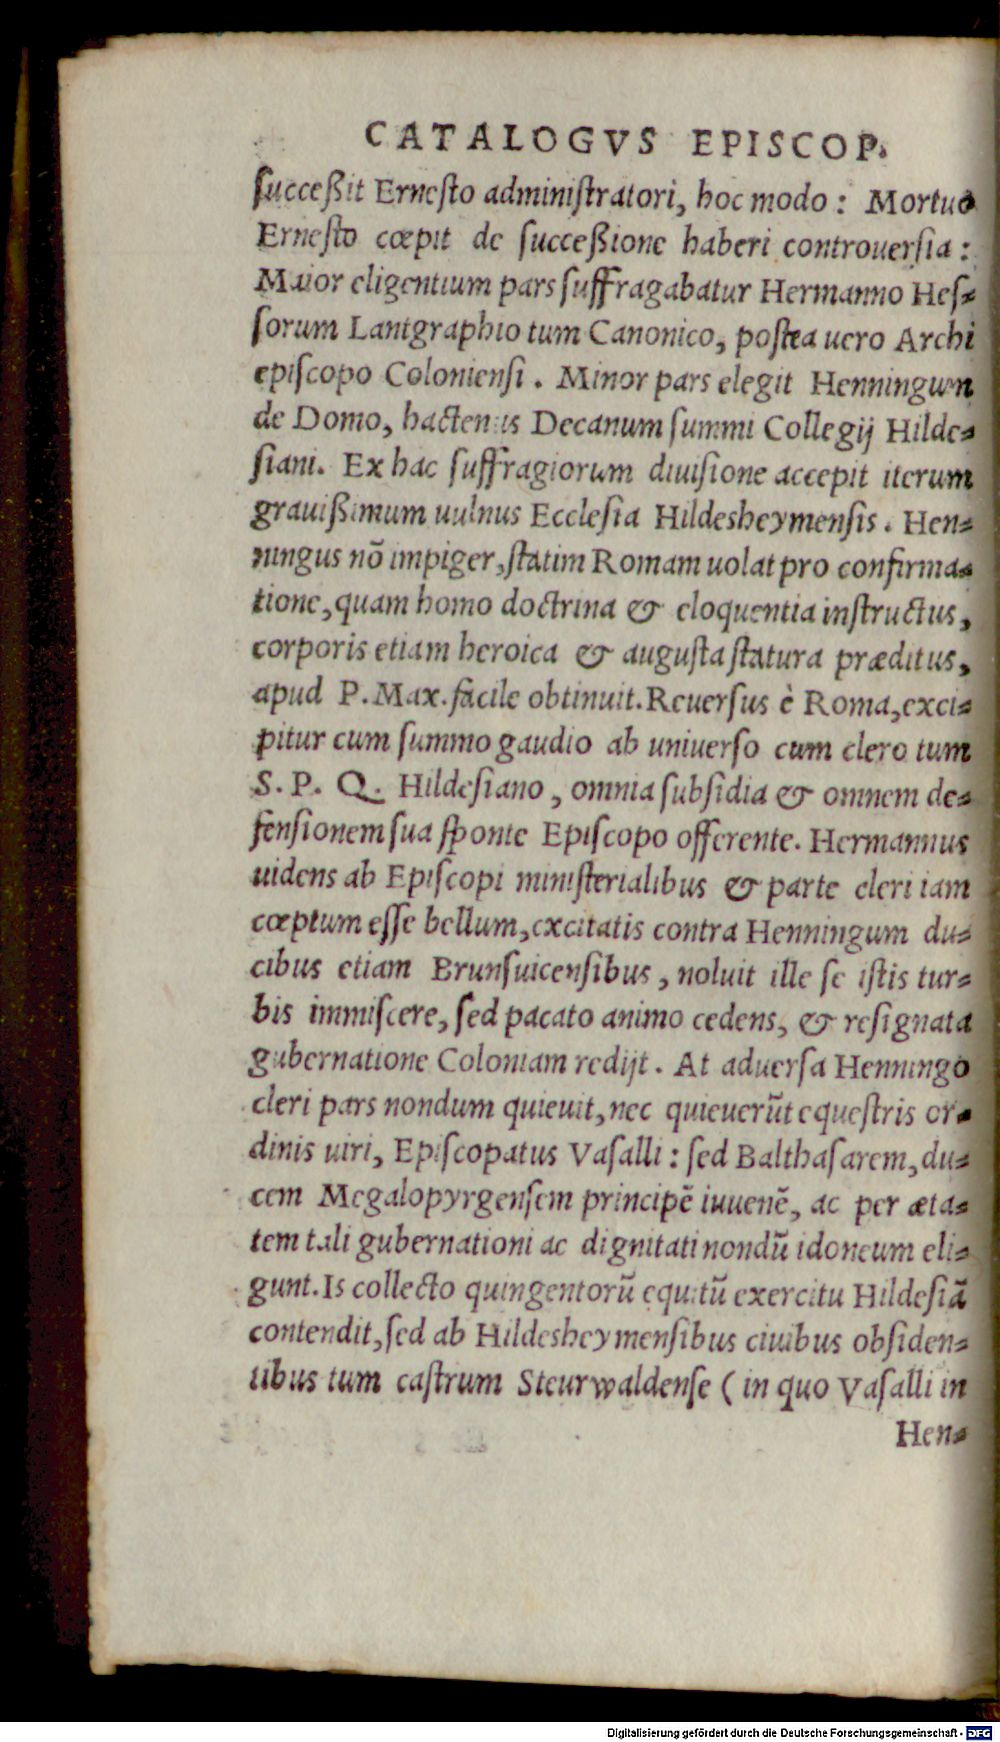 CATALOGVS EPISCOP.
succeßit Ernesto administratori, hoc modo: Mortuo
Ernesto cœpit de succeßione haberi controuersia:
Maior eligentium pars suffragabatur Hermanno Hes-
sorum Lantgraphio tum Canonico, postea uero Archi
episcopo Coloniensi. Minor pars elegit Henningum
de Domo, hactenus Decanum summi Collegij Hilde-
siani. Ex hac suffragiorum diuisione accepit iterum
grauißimum uulnus Ecclesia Hildesheymensis. Hen-
ningus nõ impiger, statim Romam uolat pro confirma-
tione, quam homo doctrina & eloquentia instructus,
corporis etiam heroica & augusta statura præditus,
apud P. Max. facile obtinuit. Reuersus è Roma, exci-
pitur cum summo gaudio ab uniuerso cum clero tum
S. P. Q. Hildesiano, omnia subsidia & omnem de-
fensionem sua sponte Episcopo offerente. Hermannus
uidens ab Episcopi ministerialibus & parte cleri iam
cœptum esse bellum, excitatis contra Henningum du-
cibus etiam Brunsuicensibus, noluit ille se istis tur-
bis immiscere, sed pacato animo cedens, & resignata
gubernatione Coloniam redijt. At aduersa Henningo
cleri pars nondum quieuit, nec quieuerũt equestris or-
dinis uiri, Episcopatus Vasalli: sed Balthasarem, du-
cem Megalopyrgensem principẽ iuuenẽ, ac per æta-
tem tali gubernationi ac dignitati nondũ idoneum eli-
gunt. Is collecto quingentorũ equitũ exercitu Hildesiã
contendit, sed ab Hildesheymensibus ciuibus obsiden-
tibus tum castrum Steurwaldense (in quo Vasalli in
Hen-
Digitalisierung gefördert durch die Deutsche Forschungsgemeinschaft - DFG